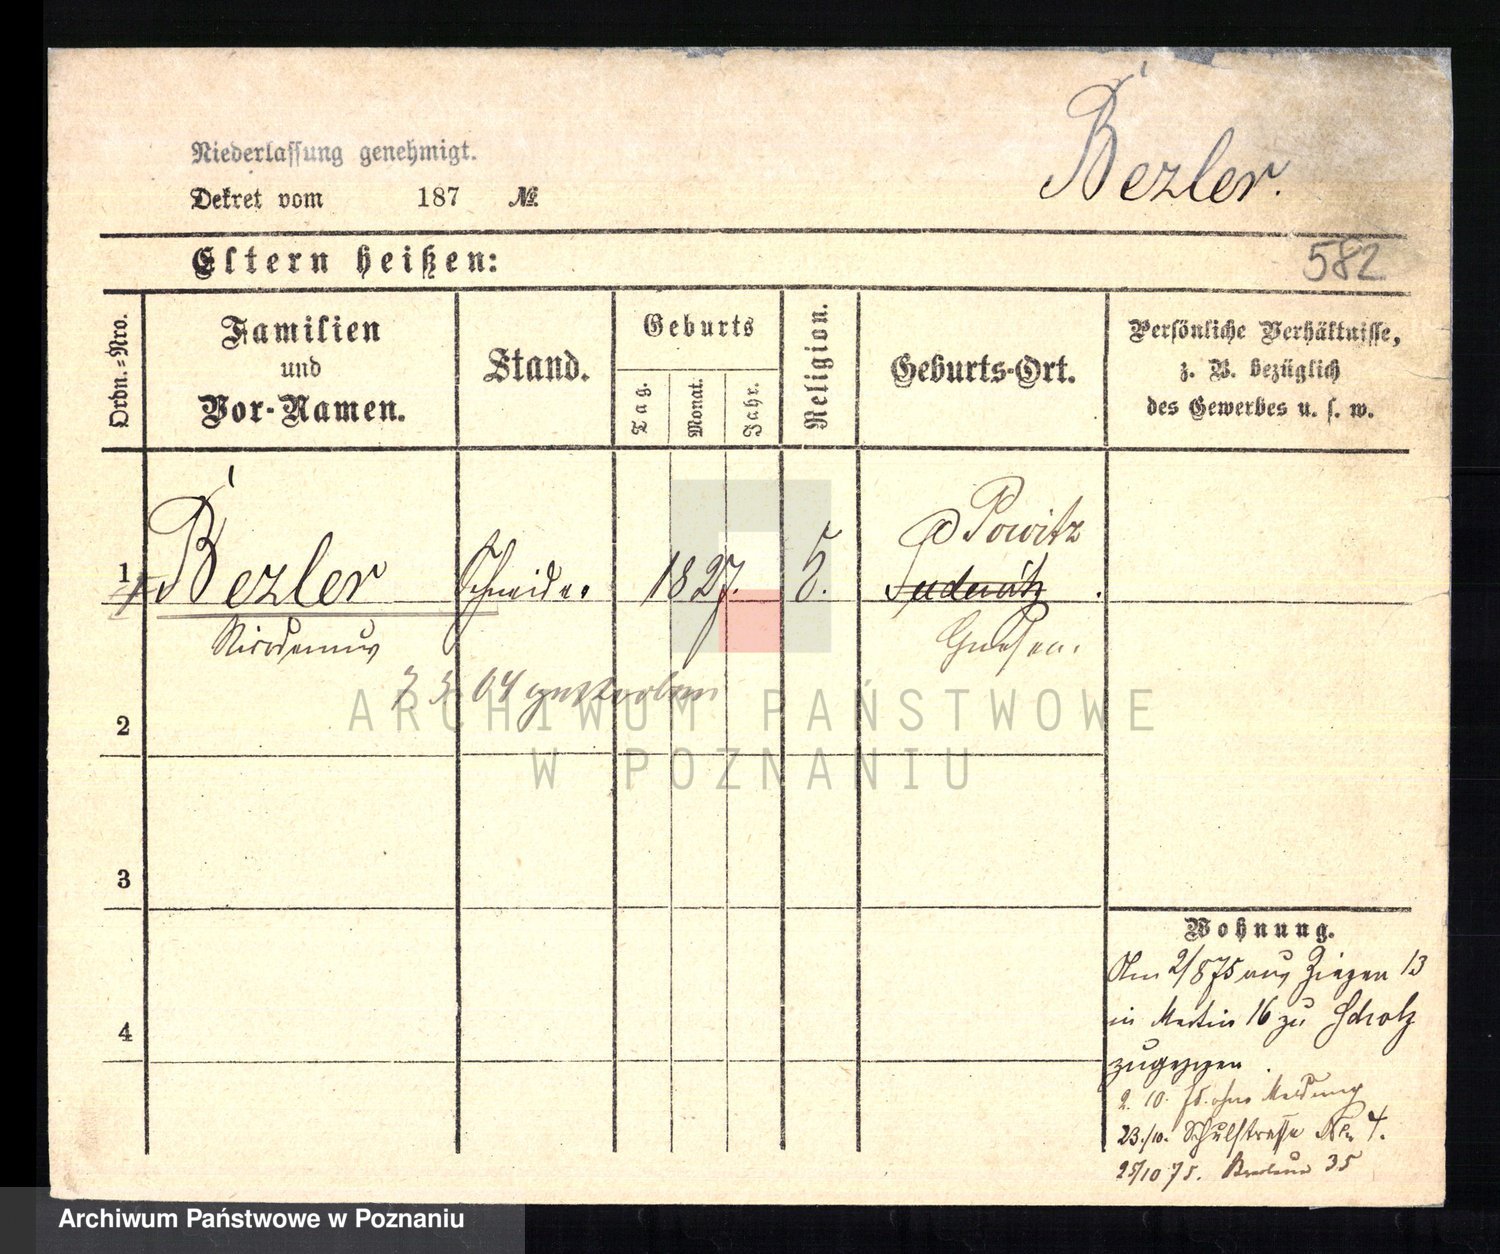 Niederlassung genehmigt.
Bezler.
Dekret vom 187 №
Eltern heißen:
582
Ordn.-Nro.
Familien
und
Vor-Namen.
Stand.
Geburts
Tag.
Monat.
Jahr.
Religion.
Geburts-Ort.
Persönliche Verhältnisse,
z. B. bezüglich
des Gewerbes u. s. w.
Powitz
1 Bezler Schneider 1827.
Nicodemus
Gnesen.
04 gestorben
2
3
4
Wohnung.
Am 2/8 75 aus Ziegen 13
in Martin 16 zu Scholz
zugezogen.
2. 10. 75. ohne Meldung
23./10. Schulstrasse No 4.
25/10 75. 35
ARCHIWUM PAŃSTWOWE
W POZNANIU
Archiwum Państwowe w Poznaniu